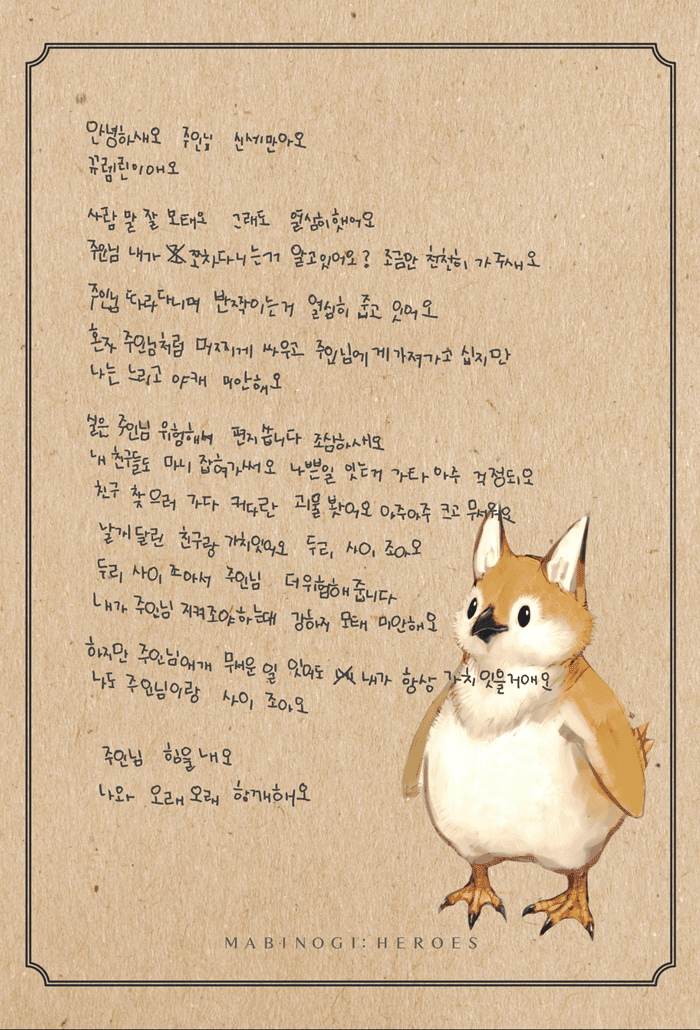 안녕하새오 주인님 신세만아오
뀨렘린이애오
사람 말 잘 모태오 그래도 열심히햇어오
주인님 내가 쪼차다니는거 알고있어오? 조금만 천천히 가 주새오
주인님 따라다니며 반짝이는거 열심히 줍고 잇어오
혼자 주인님처럼 머찌게 싸우고 주인님에게가져가고 십지만
나는 느리고 야캐 미안해오
실은 주인님 위험해서 편지씁니다 조심하새오
내 친구들도 마니 잡혀가써오 나쁜일 잇는거 가타 아주 걱정되오
친구 찾으러 가다 커다란 괴물 봣어오 아주아주 크고 무서워오
날개달린 친구랑 가치잇어오 두리 사이 조아오
두리 사이 조아서 주인님 더위험해줍니다
내가 주인님 지켜조야하는대 강하지 모태 미안해오
하지만 주인님애개 무서운 일 잇어도 내가 항상 가치잇을거애오
나도 주인님이랑 사이 조아오
주인님 힘을내오
나와 오래오래 함깨해오
MABINOGI: HEROES